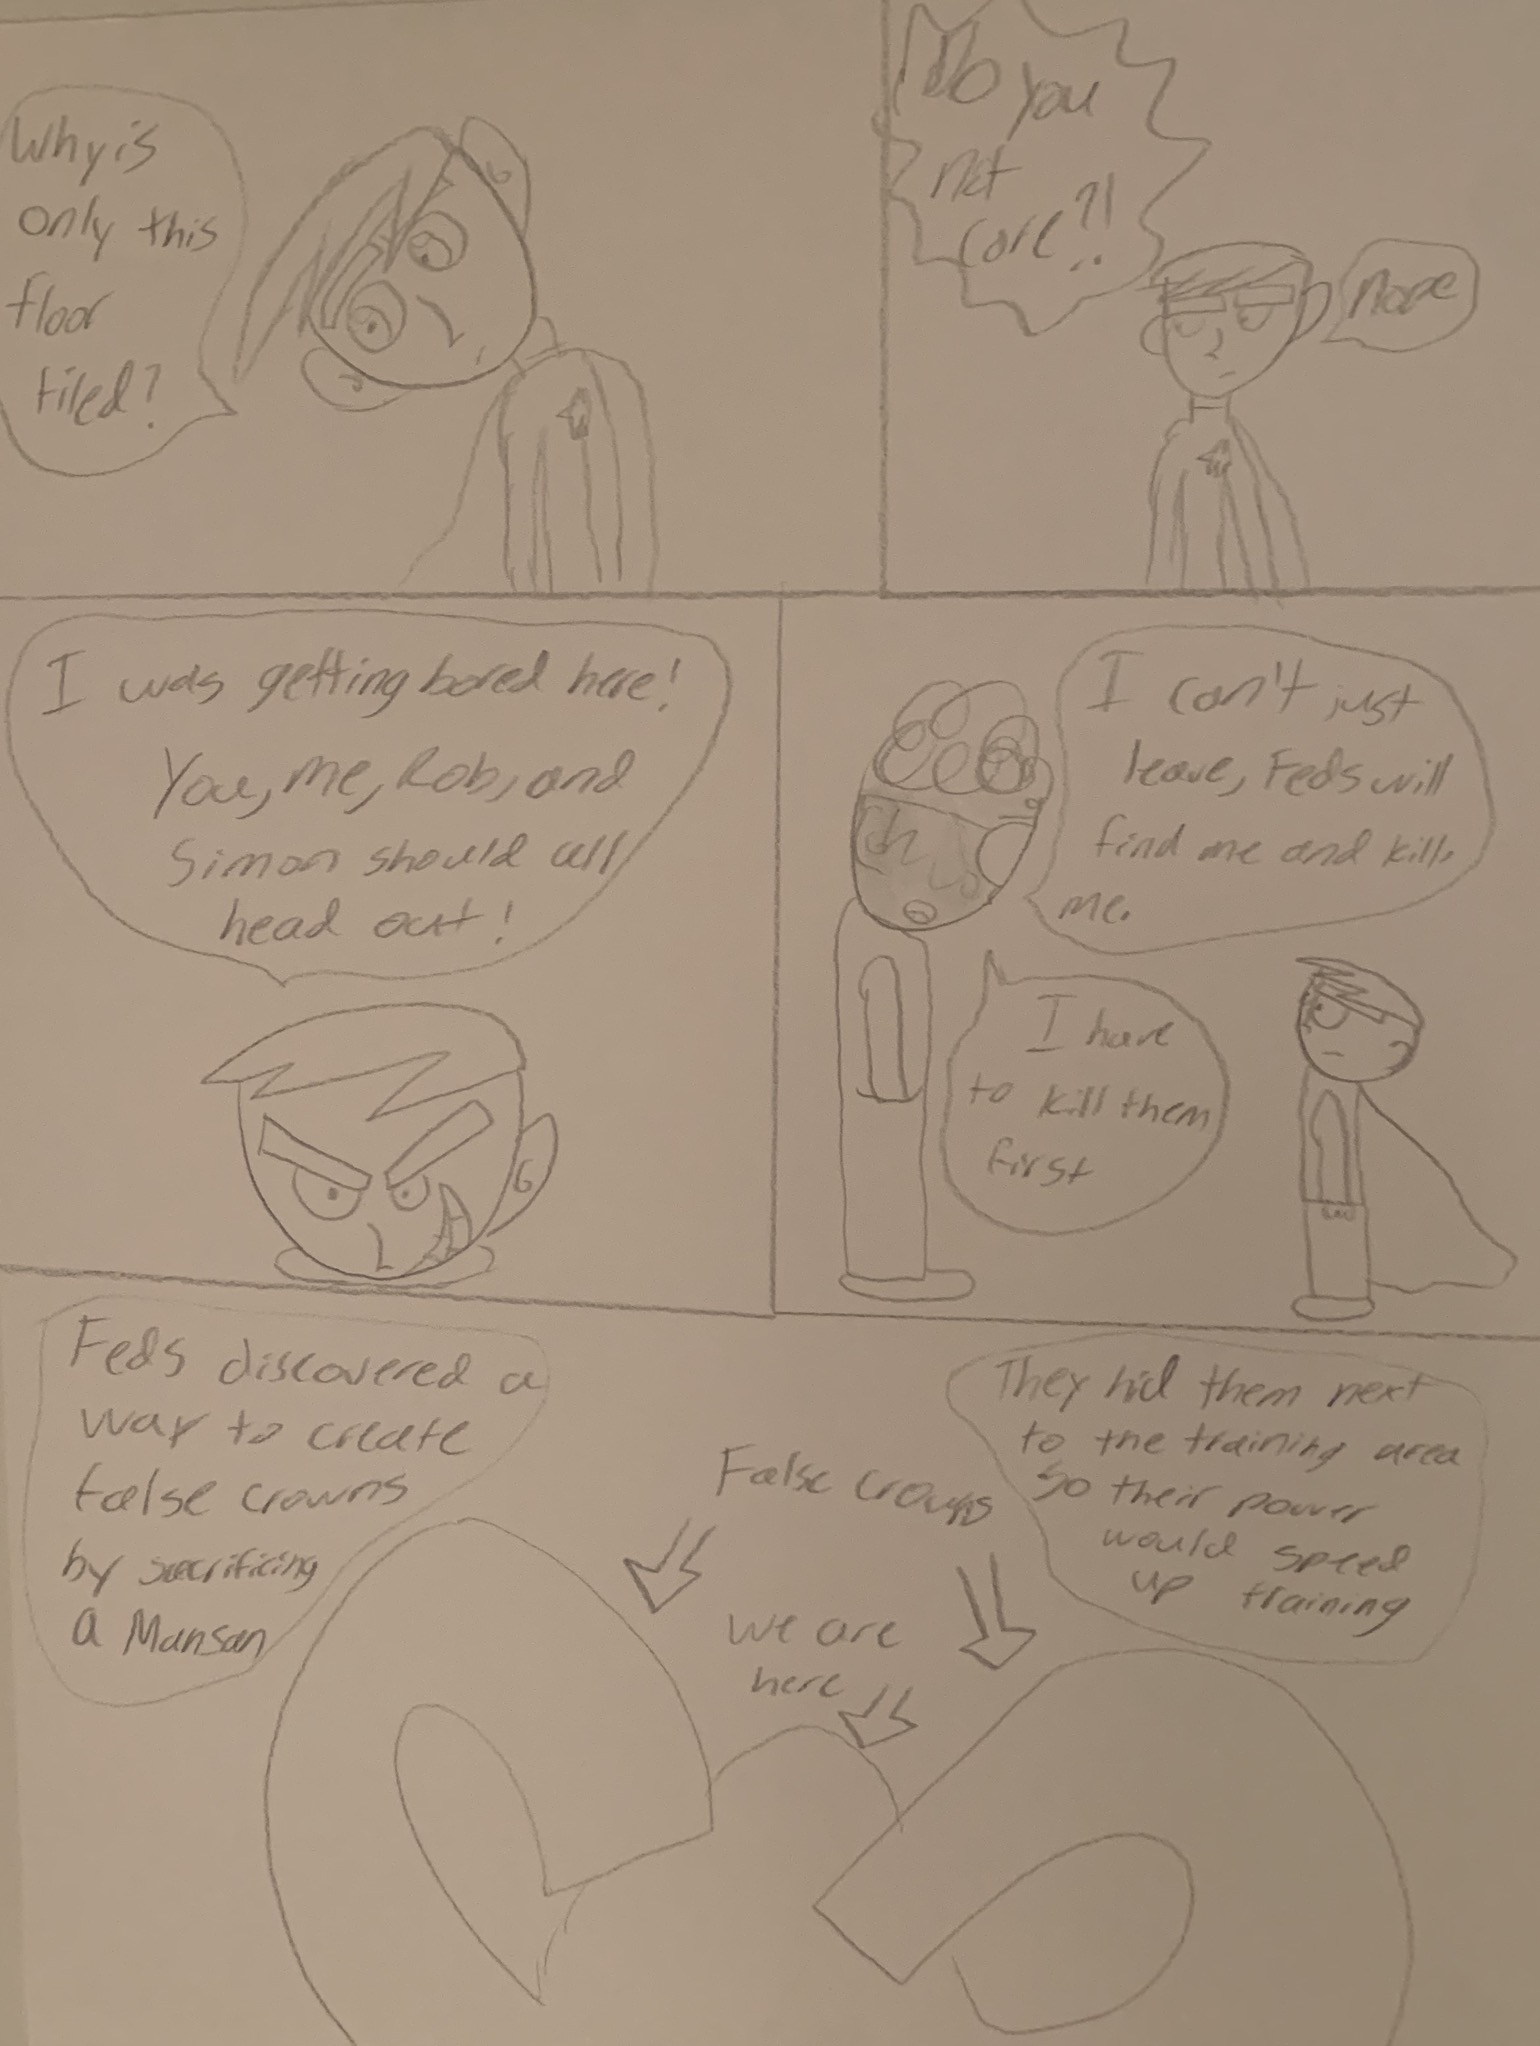 Why is
only this
floor
tiled?
Do you
not
care?!
Nope
I was getting bored here!
You, me, Rob, and
Simon should all
head out!
I can't just
leave, Feds will
find me and kill
me.
I have
to kill them
first
Feds discovered a
way to create
false crowns
by sacrificing
a Mansan
False crowns
we are
here
They hid them next
to the training area
so their power
would speed
up training